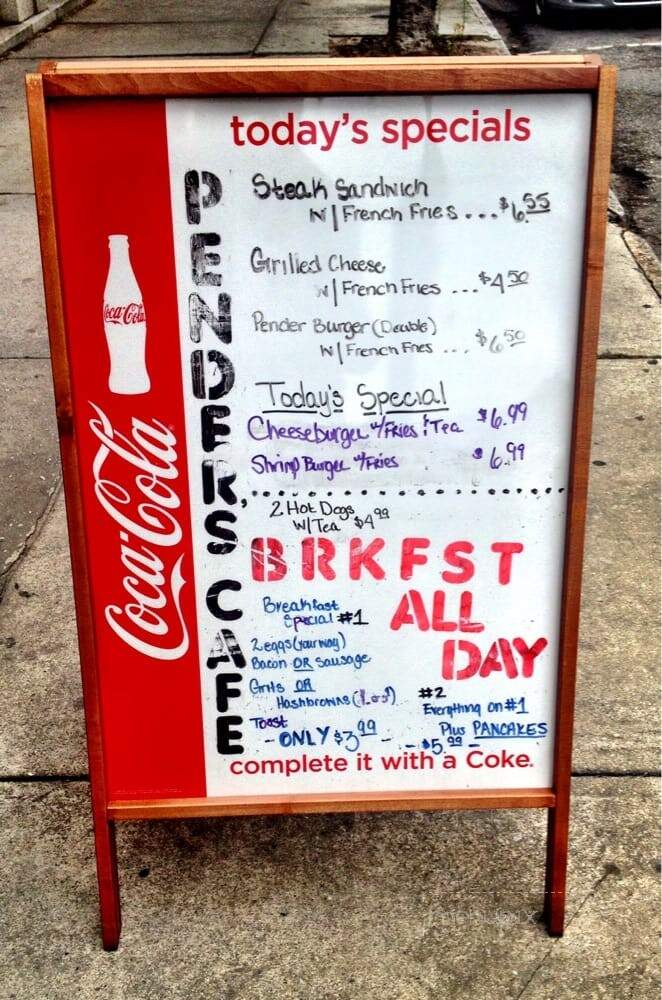 today's specials
PENDERS CAFE
Steak Sandwich
W/ French Fries ... $6.55
Grilled Cheese
W/ French Fries ... $4.50
Pender Burger (Double)
W/ French Fries ... $6.50
Today's Special
Cheeseburger w/Fries & Tea $6.99
Shrimp Burger w/Fries $6.99
2 Hot Dogs
W/ Tea $4.99
BRKFST
ALL
DAY
Breakfast
Special #1
2 eggs (your way)
Bacon OR Sausage
Grits OR
Hashbrowns
Toast
- ONLY $3.99 -
#2
Everything on #1
Plus PANCAKES
- $5.99 -
complete it with a Coke.
Coca-Cola
Coca-Cola